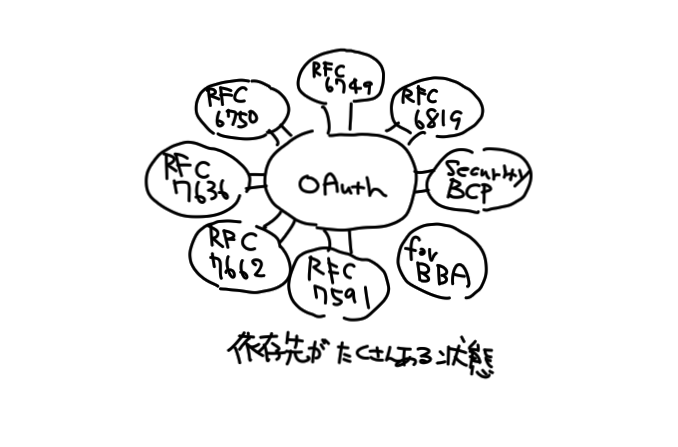 RFC
6749
RFC
6750
RFC
6819
RFC
7636
OAuth
Security
BCP
RFC
7662
RFC
7591
for
BBA
依存先がたくさんある状態